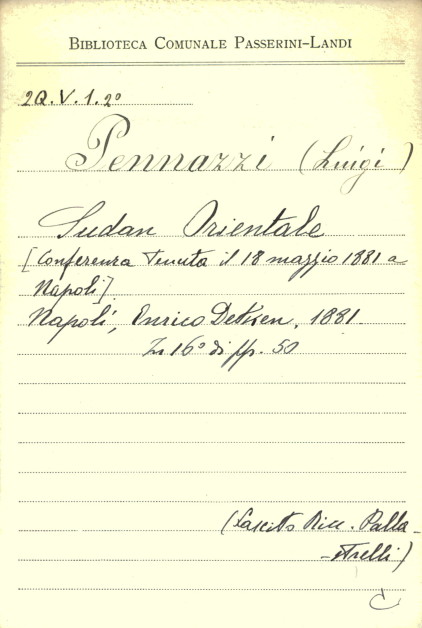 BIBLIOTECA COMUNALE PASSERINI-LANDI
2Q.V.1.2º
Pennazzi (Luigi)
Sudan Orientale
[Conferenza tenuta il 18 maggio 1881 a
Napoli]
Napoli, Enrico Detken, 1881.
In 16º di pp. 50
(Lascito Picc. Palla-
-strelli)
C